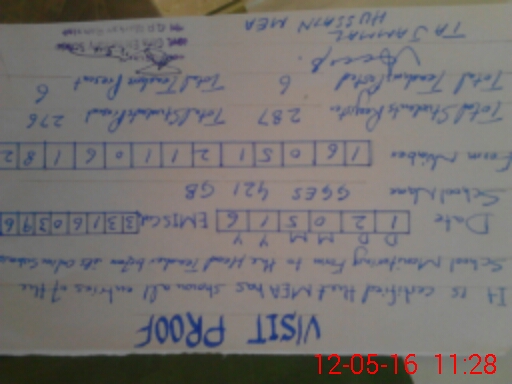 VISIT PROOF
It is certified that MEA has shown all entries of the
School Monitoring Form to the Head Teacher before its Online
D D M M Y Y
Date 1 2 0 5 1 6 EMIS Code 3 3 1 6 0 3 9 6
School Name GGES 421 GB
Form Number 1 6 0 5 1 2 1 1 0 6 1 8 2
Total Students Register 287 Total Students Present 276
Total Teachers Posted 6 Total Teachers Present 6
TAJAMMAL
HUSSAIN MEA
12-05-16 11:28